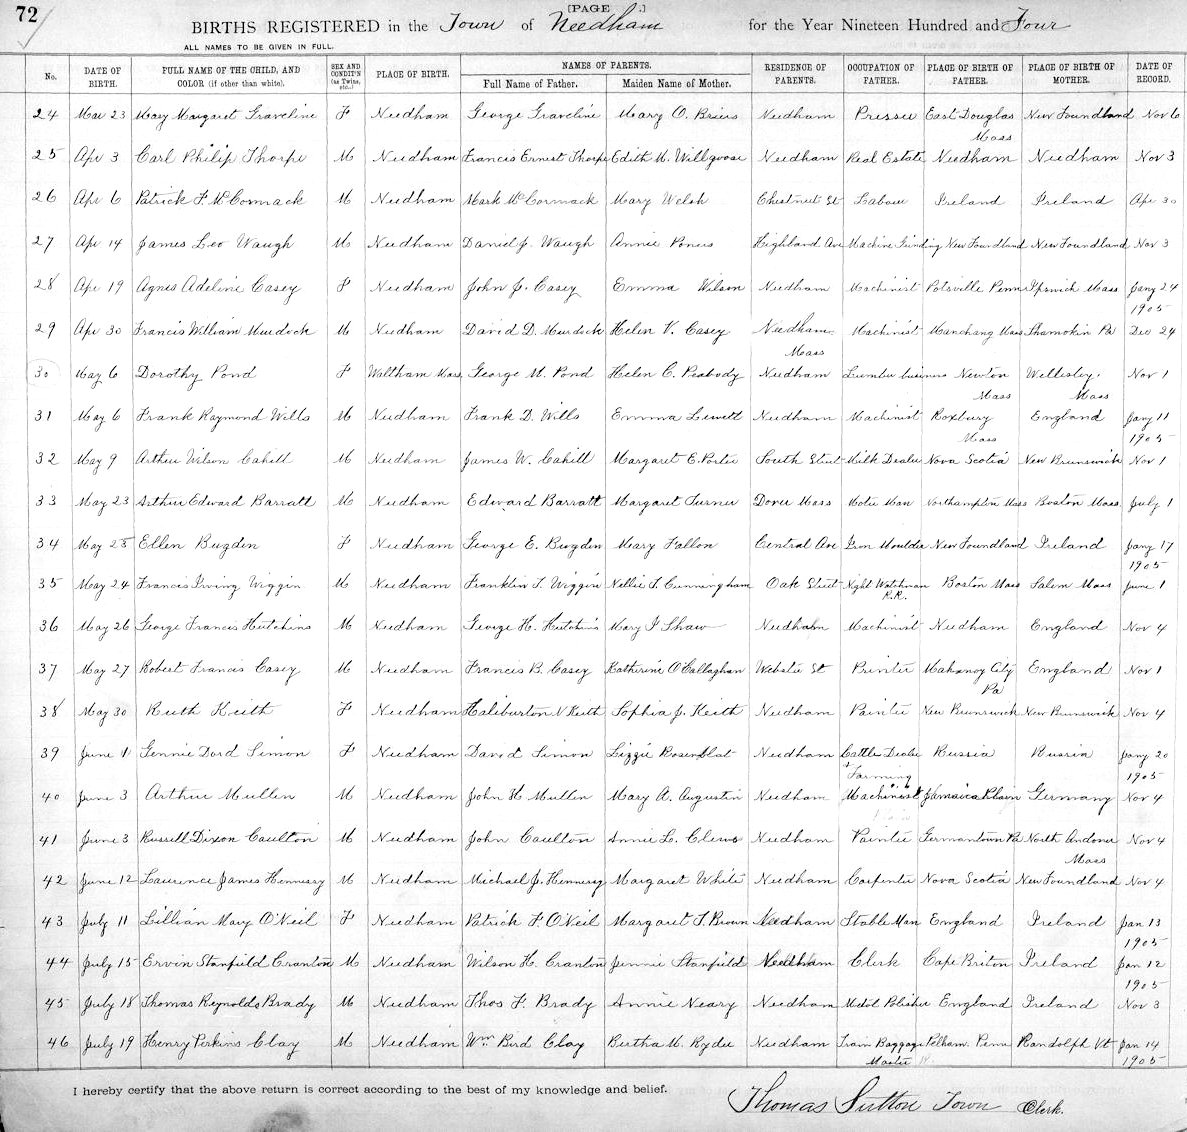 72
[PAGE .]
BIRTHS REGISTERED in the Town of Needham for the Year Nineteen Hundred and Four
ALL NAMES TO BE GIVEN IN FULL.
No. DATE OF BIRTH. FULL NAME OF THE CHILD, AND COLOR (if other than white). SEX AND CONDIT'N (as Twins, etc.,) PLACE OF BIRTH. NAMES OF PARENTS. Full Name of Father. Maiden Name of Mother. RESIDENCE OF PARENTS. OCCUPATION OF FATHER. PLACE OF BIRTH OF FATHER. PLACE OF BIRTH OF MOTHER. DATE OF RECORD.
24 Mar 23 Mary Margaret Graveline F Needham George Graveline Mary O. Needham Presser East Douglas New Foundland Nov 6
Mass
25 Apr 3 Carl Philip Thorpe M Needham Francis Ernest Thorpe Edith M. Willgoose Needham Real Estate Needham Needham Nov 3
26 Apr 6 Patrick F. McCormack M Needham Mark McCormack Mary Welsh Chestnut St Labour Ireland Ireland Apr 30
27 Apr 14 James Leo Waugh M Needham Daniel J. Waugh Annie Highland Ave Machine Grinding New Foundland New Foundland Nov 3
28 Apr 19 Agnes Adeline Casey F Needham John J. Casey Emma Wilson Needham Machinist Potsville Penn Ipswich Mass Jany 24
1905
29 Apr 30 Francis William Murdock M Needham David D. Murdock Helen V. Casey Needham Machinist Manchaug Mass Shamokin Pa Dec 24
Mass
30 May 6 Dorothy Pond F Waltham Mass George M. Pond Helen C. Peabody Needham Lumber business Newton Wellesley, Nov 1
Mass Mass
31 May 6 Frank Raymond Wills M Needham Frank D. Wills Emma Lewett Needham Machinist Roxbury England Jany 11
Mass 1905
32 May 9 Arthur Wilson Cahill M Needham James W. Cahill Margaret E. Porter South Street Milk Dealer Nova Scotia New Brunswick Nov 1
33 May 23 Arthur Edward Barratt M Needham Edward Barratt Margaret Turner Dover Mass Motor Man Northampton Mass Boston Mass July 1
34 May 28 Ellen Bugden F Needham George E. Bugden Mary Fallon Central Ave Iron Moulder New Foundland Ireland Jany 17
1905
35 May 24 Francis Irving Wiggin M Needham Franklin T. Wiggin Nellie T. Cunningham Oak Street Night Watchman Boston Mass Salem Mass June 1
R.R.
36 May 26 George Francis Hutchins M Needham George H. Hutchins Mary I Shaw Needham Machinist Needham England Nov 4
37 May 27 Robert Francis Casey M Needham Francis B. Casey Katherine O'Callaghan Webster St Printer Mahanoy City England Nov 1
Pa
38 May 30 Ruth Keith F Needham Haliburton N Keith Sophia J. Keith Needham Painter New Brunswick New Brunswick Nov 4
39 June 1 Gennie Dord Simon F Needham David Simon Lizzie Rosenblat Needham Cattle Dealer Russia Russia Jany 20
+ Farming 1905
40 June 3 Arthur Mullen M Needham John H Mullen Mary A. Augustin Needham Machinist Jamaica Plain Germany Nov 4
41 June 3 Russell Dixon Caulton M Needham John Caulton Annie L. Clews Needham Painter Germantown Pa North Andover Nov 4
Mass
42 June 12 Laurence James Hennessy M Needham Michael J. Hennessy Margaret White Needham Carpenter Nova Scotia New Foundland Nov 4
43 July 11 Lillian Mary O'Neil F Needham Patrick F. O'Neil Margaret T. Brown Needham Stable Man England Ireland Jan 13
1905
44 July 15 Ervin Stanfield Cranton M Needham Wilson H. Cranton Jennie Stanfield Needham Clerk Cape Briton Ireland Jan 12
1905
45 July 18 Thomas Reynolds Brady M Needham Thos F. Brady Annie Neary Needham Metal Polisher England Ireland Nov 3
46 July 19 Henry Perkins Clay M Needham Wm Bird Clay Bertha M. Ryder Needham Train Baggage Pelham. Penn Randolph Vt Jan 14
Master 1905
I hereby certify that the above return is correct according to the best of my knowledge and belief.
Thomas Sutton Town Clerk.